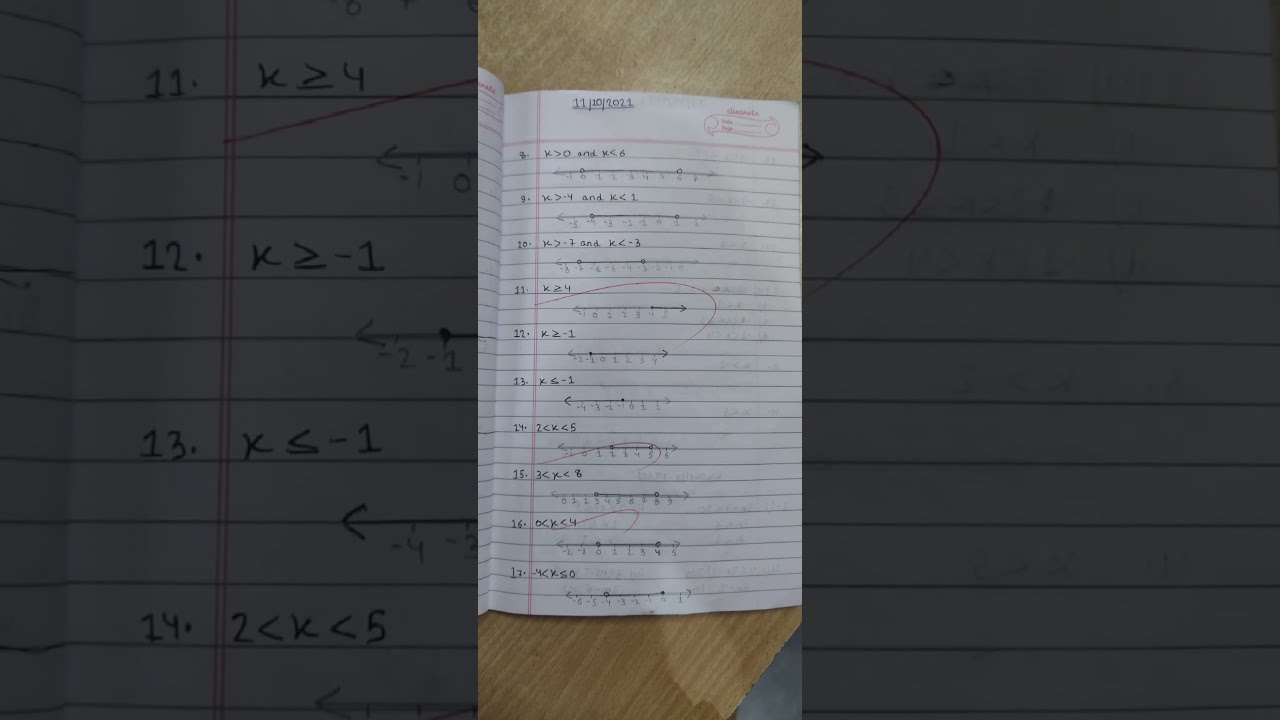 11/10/2021
classmate
Date
Page
8. x>0 and x<6
-1 0 1 2 3 4 5 6 7
9. x>-4 and x<1
-5 -4 -3 -2 -1 0 1 2
10. x>-7 and x<-3
-8 -7 -6 -5 -4 -3 -2 -1 0
11. x≥4
-1 0 1 2 3 4 5
12. x≥-1
-2 -1 0 1 2 3 4
13. x≤-1
-4 -3 -2 -1 0 1 2
14. 2<x<5
-1 0 1 2 3 4 5 6
15. 3<x<8
0 1 2 3 4 5 6 7 8 9
16. 0<x<4
-2 -1 0 1 2 3 4 5
17. -4<x≤0
-6 -5 -4 -3 -2 -1 0 1
11. x≥4
-1 0
12. x≥-1
-2 -1
13. x≤-1
-4 -3
14. 2<x<5